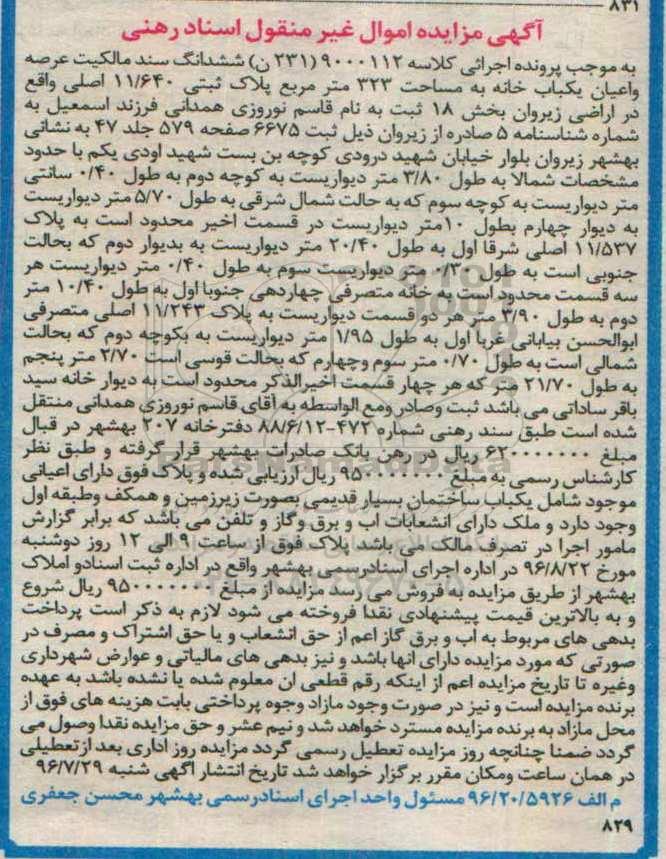 ۸۳۱
آگهی مزایده اموال غیر منقول اسناد رهنی
به موجب پرونده اجرائی کلاسه ۹۰۰۰۱۱۲ (۲۳۱ ن) ششدانگ سند مالکیت عرصه
واعیان یکباب خانه به مساحت ۳۲۳ متر مربع پلاک ثبتی ۱۱/۶۴۰ اصلی واقع
در اراضی زیروان بخش ۱۸ ثبت به نام قاسم نوروزی همدانی فرزند اسمعیل به
شماره شناسنامه ۵ صادره از زیروان ذیل ثبت ۶۶۷۵ صفحه ۵۷۹ جلد ۴۷ به نشانی
بهشهر زیروان بلوار خیابان شهید درودی کوچه بن بست شهید اودی یکم با حدود
مشخصات شمالا به طول ۳/۸۰ متر دیواریست به کوچه دوم به طول ۰/۴۰ سانتی
متر دیواریست به کوچه سوم که به حالت شمال شرقی به طول ۵/۷۰ متر دیواریست
به دیوار چهارم بطول ۱۰متر دیواریست در قسمت اخیر محدود است به پلاک
۱۱/۵۳۷ اصلی شرقا اول به طول ۲۰/۴۰ متر دیواریست به بدیوار دوم که بحالت
جنوبی است به طول ۰/۳۰ متر دیواریست سوم به طول ۰/۴۰ متر دیواریست هر
سه قسمت محدود است به خانه متصرفی چهاردهی جنوبا اول به طول ۱۰/۴۰ متر
دوم به طول ۳/۹۰ متر هر دو قسمت دیواریست به پلاک ۱۱/۲۴۳ اصلی متصرفی
ابوالحسن بیابانی غربا اول به طول ۱/۹۵ متر دیواریست به بکوچه دوم که بحالت
شمالی است به طول ۰/۷۰ متر سوم وچهارم که بحالت قوسی است ۲/۷۰ متر پنجم
به طول ۲۱/۷۰ متر که هر چهار قسمت اخیرالذکر محدود است به دیوار خانه سید
باقر ساداتی می باشد ثبت وصادر ومع الواسطه به آقای قاسم نوروزی همدانی منتقل
شده است طبق سند رهنی شماره ۴۷۲-۸۸/۶/۱۲ دفترخانه ۲۰۷ بهشهر در قبال
مبلغ ۶۲۰۰۰۰۰۰۰ ریال در رهن بانک صادرات بهشهر قرار گرفته و طبق نظر
کارشناس رسمی به مبلغ ۹۵۰۰۰۰۰۰۰ ریال ارزیابی شده و پلاک فوق دارای اعیانی
موجود شامل یکباب ساختمان بسیار قدیمی بصورت زیرزمین و همکف وطبقه اول
وجود دارد و ملک دارای انشعابات اب و برق وگاز و تلفن می باشد که برابر گزارش
مامور اجرا در تصرف مالک می باشد پلاک فوق از ساعت ۹ الی ۱۲ روز دوشنبه
مورخ ۹۶/۸/۲۲ در اداره اجرای اسنادرسمی بهشهر واقع در اداره ثبت اسنادو املاک
بهشهر از طریق مزایده به فروش می رسد مزایده از مبلغ ۹۵۰۰۰۰۰۰۰ ریال شروع
و به بالاترین قیمت پیشنهادی نقدا فروخته می شود لازم به ذکر است پرداخت
بدهی های مربوط به اب و برق گاز اعم از حق انشعاب و یا حق اشتراک و مصرف در
صورتی که مورد مزایده دارای انها باشد و نیز بدهی های مالیاتی و عوارض شهرداری
وغیره تا تاریخ مزایده اعم از اینکه رقم قطعی ان معلوم شده یا نشده باشد به عهده
برنده مزایده است و نیز در صورت وجود مازاد وجوه پرداختی بابت هزینه های فوق از
محل مازاد به برنده مزایده مسترد خواهد شد و نیم عشر و حق مزایده نقدا وصول می
گردد ضمنا چنانچه روز مزایده تعطیل رسمی گردد مزایده روز اداری بعد ازتعطیلی
در همان ساعت ومکان مقرر برگزار خواهد شد تاریخ انتشار اگهی شنبه ۹۶/۷/۲۹
م الف ۹۶/۲۰/۵۹۲۶ مسئول واحد اجرای اسنادرسمی بهشهر محسن جعفری
۸۲۹